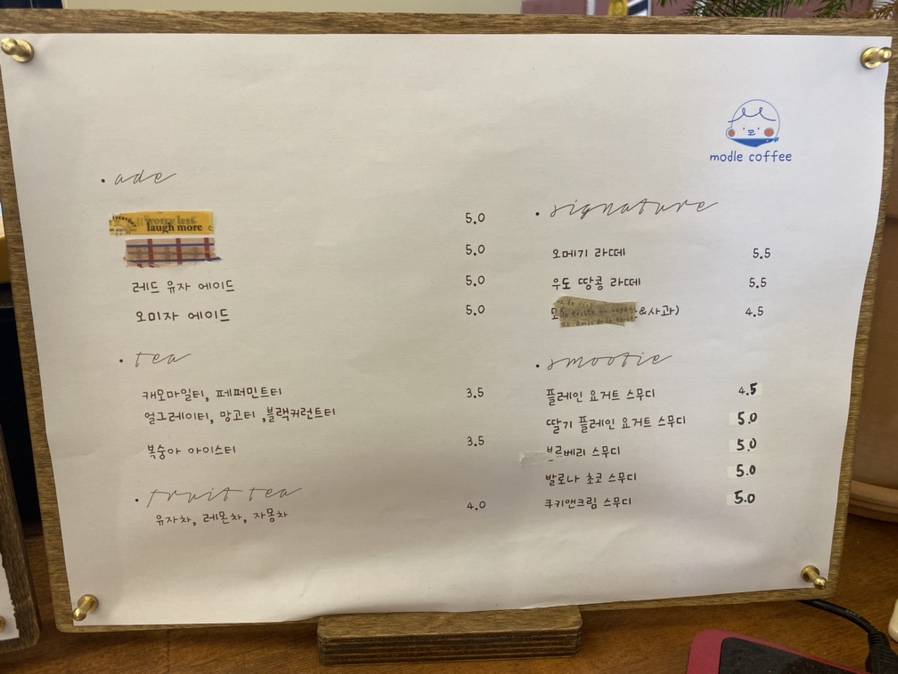 modle coffee
· ade
worry less
laugh more
5.0
5.0
레드 유자 에이드 5.0
오미자 에이드 5.0
· tea
캐모마일티, 페퍼민트티 3.5
얼그레이티, 망고티, 블랙커런트티
복숭아 아이스티 3.5
· fruit tea
유자차, 레몬차, 자몽차 4.0
· signature
오메기 라떼 5.5
우도 땅콩 라떼 5.5
&사과) 4.5
· smootie
플레인 요거트 스무디 4.5
딸기 플레인 요거트 스무디 5.0
베리 스무디 5.0
발로나 초코 스무디 5.0
쿠키앤크림 스무디 5.0